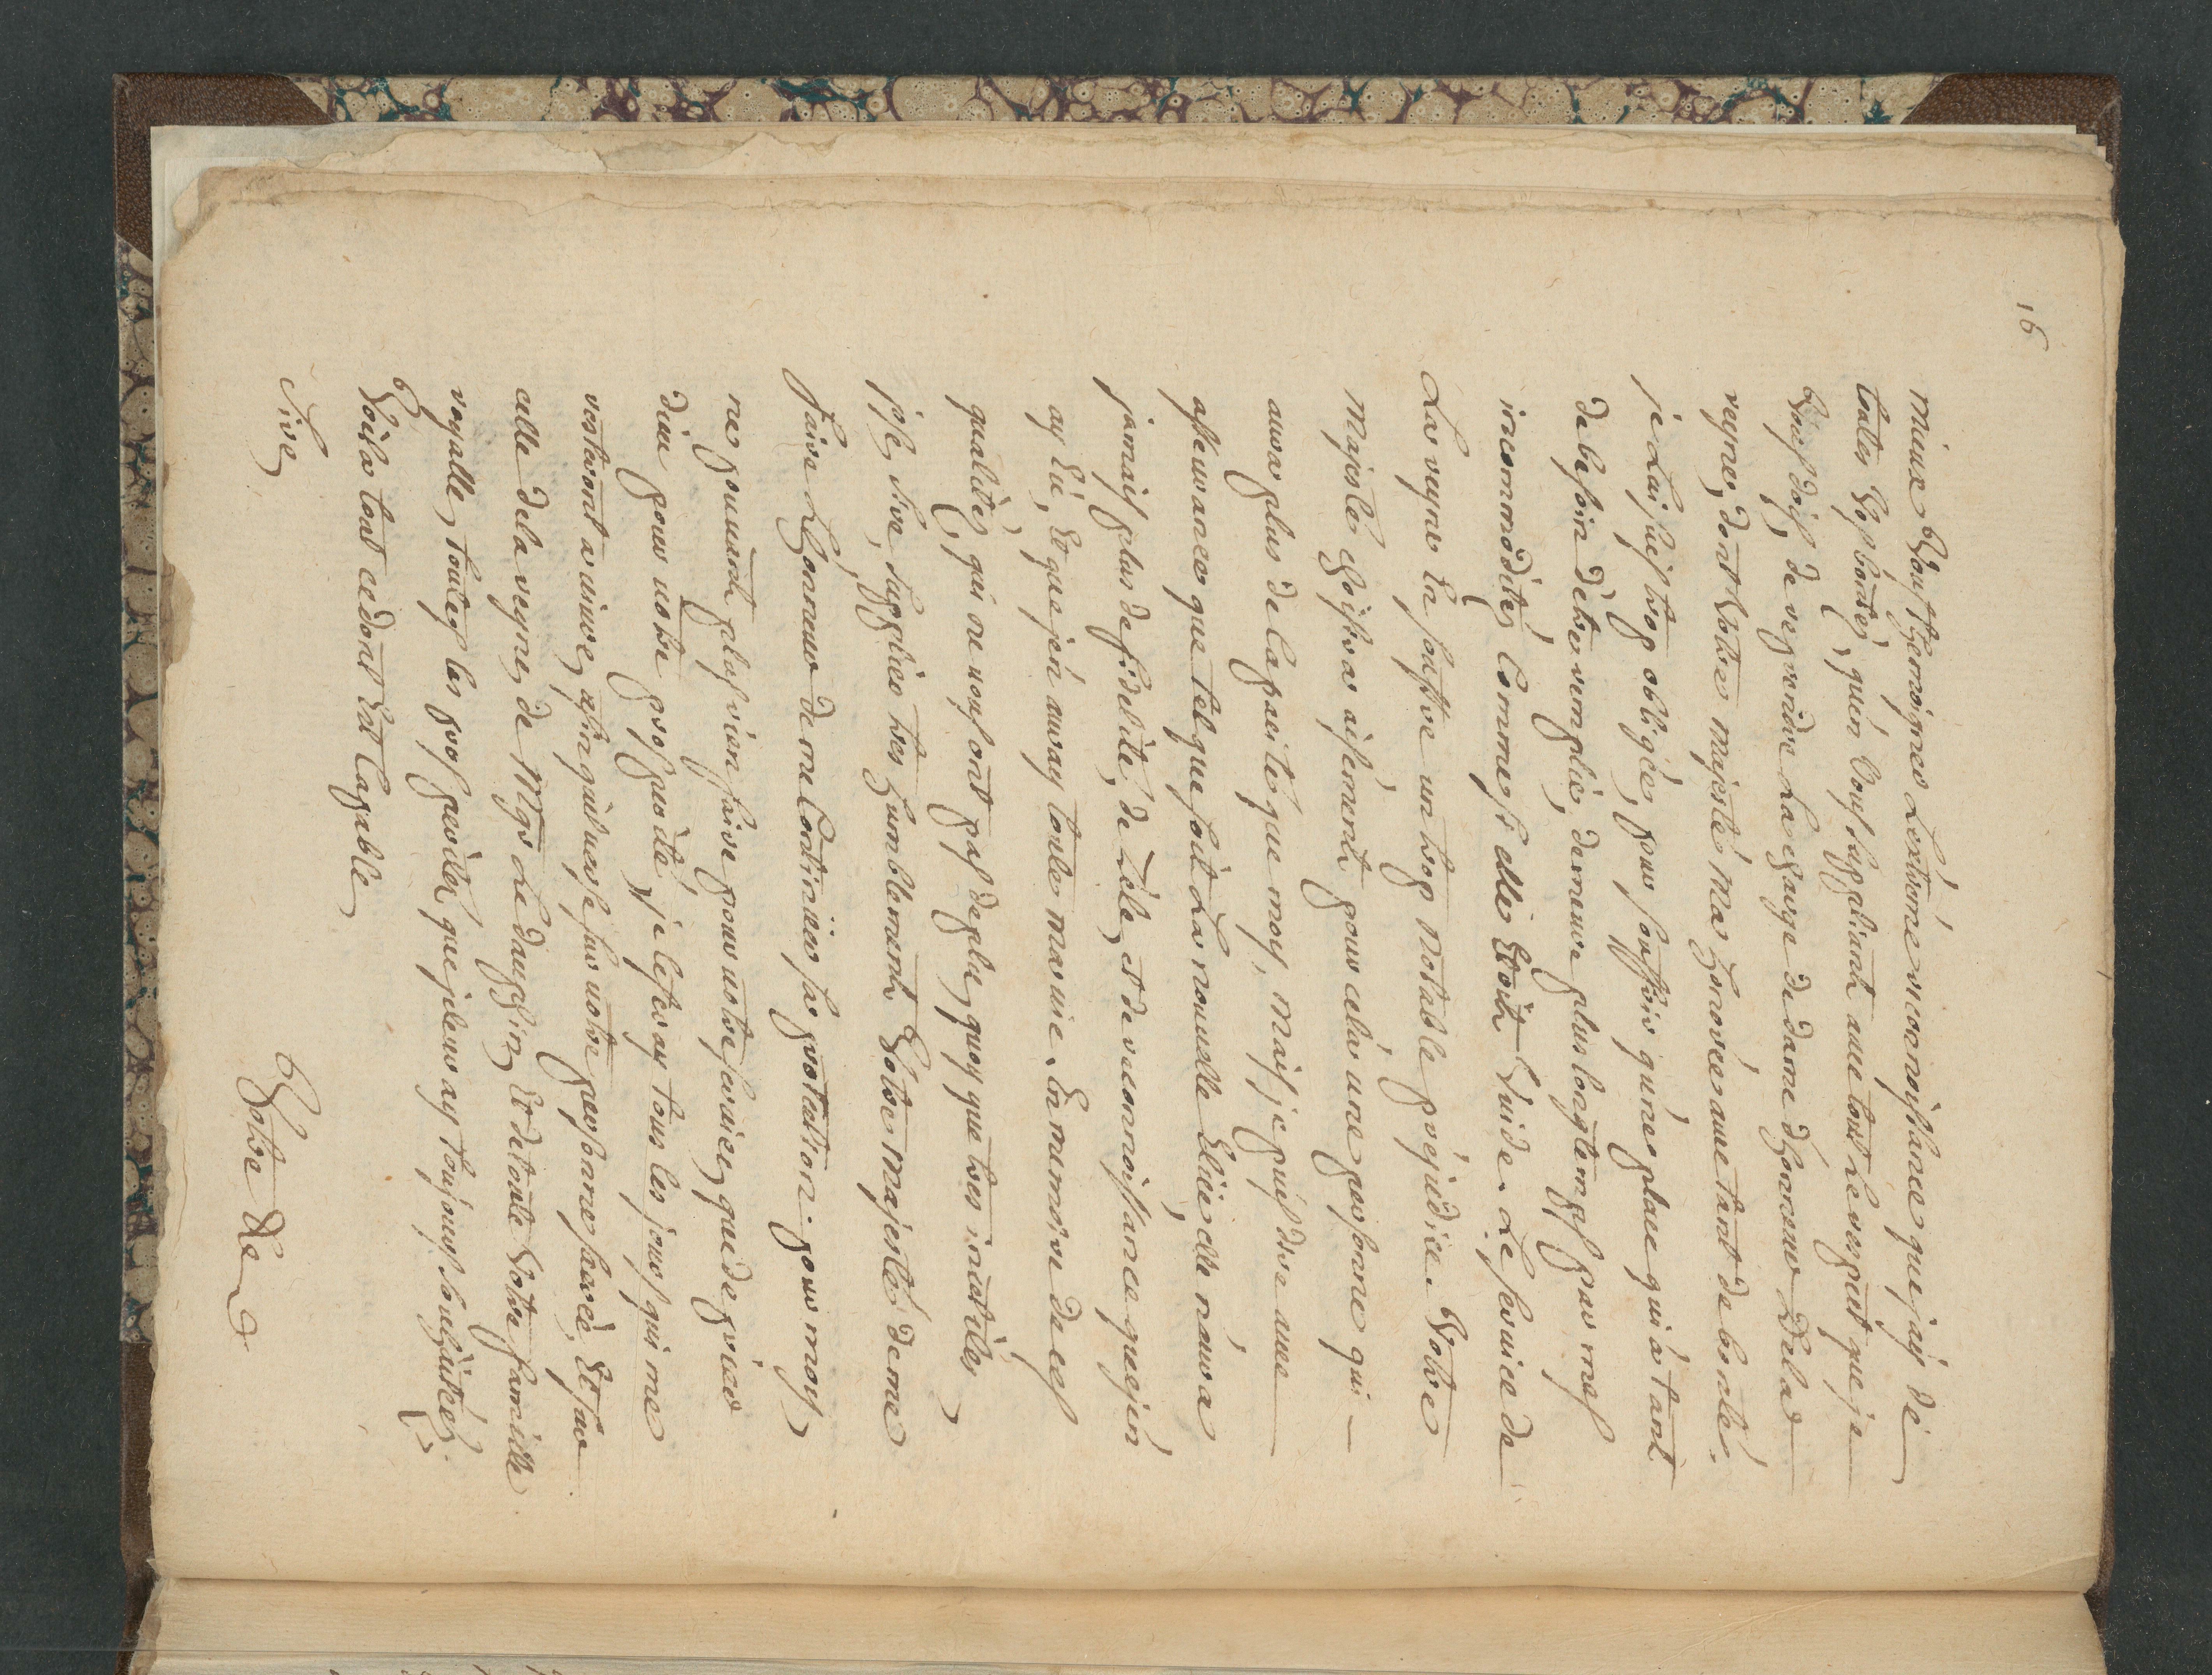 16
mieux Vous thémoignes Lextréme reconoissance que jay de
toutes Vos bontés, quen Vous suppliant auec tout Le respect que je
Vous dois, de reprendre La charge de dame dhonneur de La
reyne, dont Votre majesté ma honorée auec tant de bonté.
je Luy suis trop obligée, pour souffrir qune place qui a tant
de besoin detre remplie, demeure plus longtemps par mes
incommodités comme si elle Etoit Vuide. Le seruice de
La reyne En souffre un trop notable préjudice. Votre
Majesté choisira aisément pour cela une personne qui
aura plus de Capacité que moy, mais je puis dire auec
asseurance que telque soit La nouuelle Elüe, elle n'aura
jamais plus de fidelité, de Zéle, et de reconnoissance que jén
ay Eü, Et que jén auray toute ma vie. En memoire de ces
qualités, qui ne uous ont pas deplu, quoy que tres inutiles,
jose, Sire, supplier tres humblement Votre Majesté de me
faire Lhonneur de me Continüer sa protection. pour moy,
ne pouuant plus rien faire pour uotre seruice, que de prier
dieu pour uotre prosperité, je le feray tous les jours qui me
resteront a uiure, afin quil uerse sur uotre personne sacrée, Et sur
celle de la reyne, de Mgr Le dauphin, Et de toute Votre famille
royalle, toutes les prosperités que je leur ay toujours souhaités.
Voila tout ce dont Est Capable,
Sire,
Votre &c